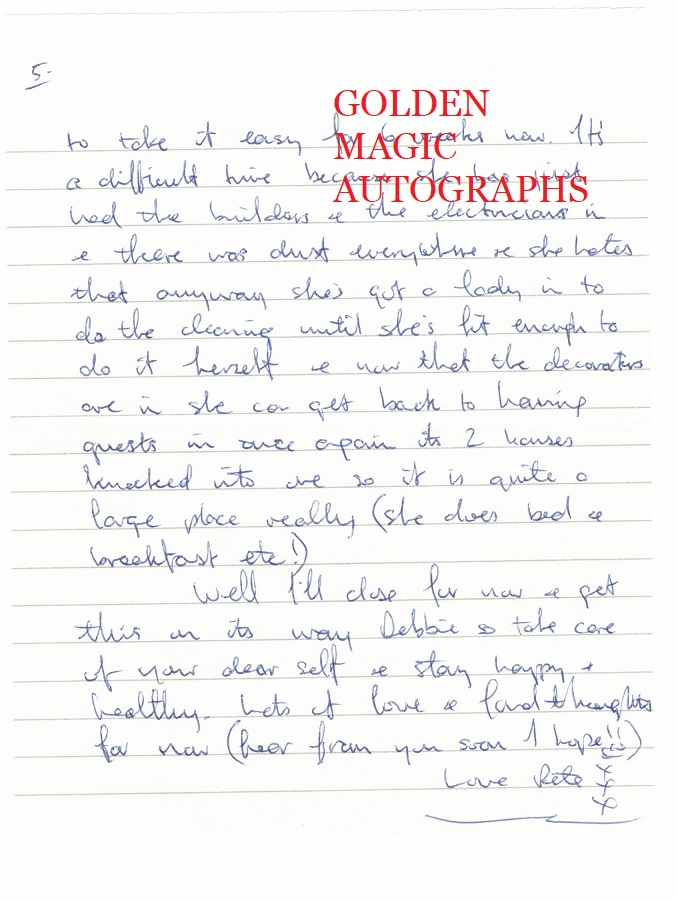 5.
GOLDEN
MAGIC
AUTOGRAPHS
to take it easy for 6 weeks now. It's
a difficult time because she has first
had the builders & the electricians in
& there was dust everywhere & she hates
that anyway she's got a lady in to
do the cleaning until she's fit enough to
do it herself & now that the decorators
are in she can get back to having
guests in once again its 2 houses
knocked into one so it is quite a
large place really (she does bed &
breakfast etc!)
Well I'll close for now & get
this on its way Debbie so take care
of your dear self & stay happy +
healthy. Lots of love & fond thoughts
for now (hear from you soon I hope!!)
Love Rita
x
x
x